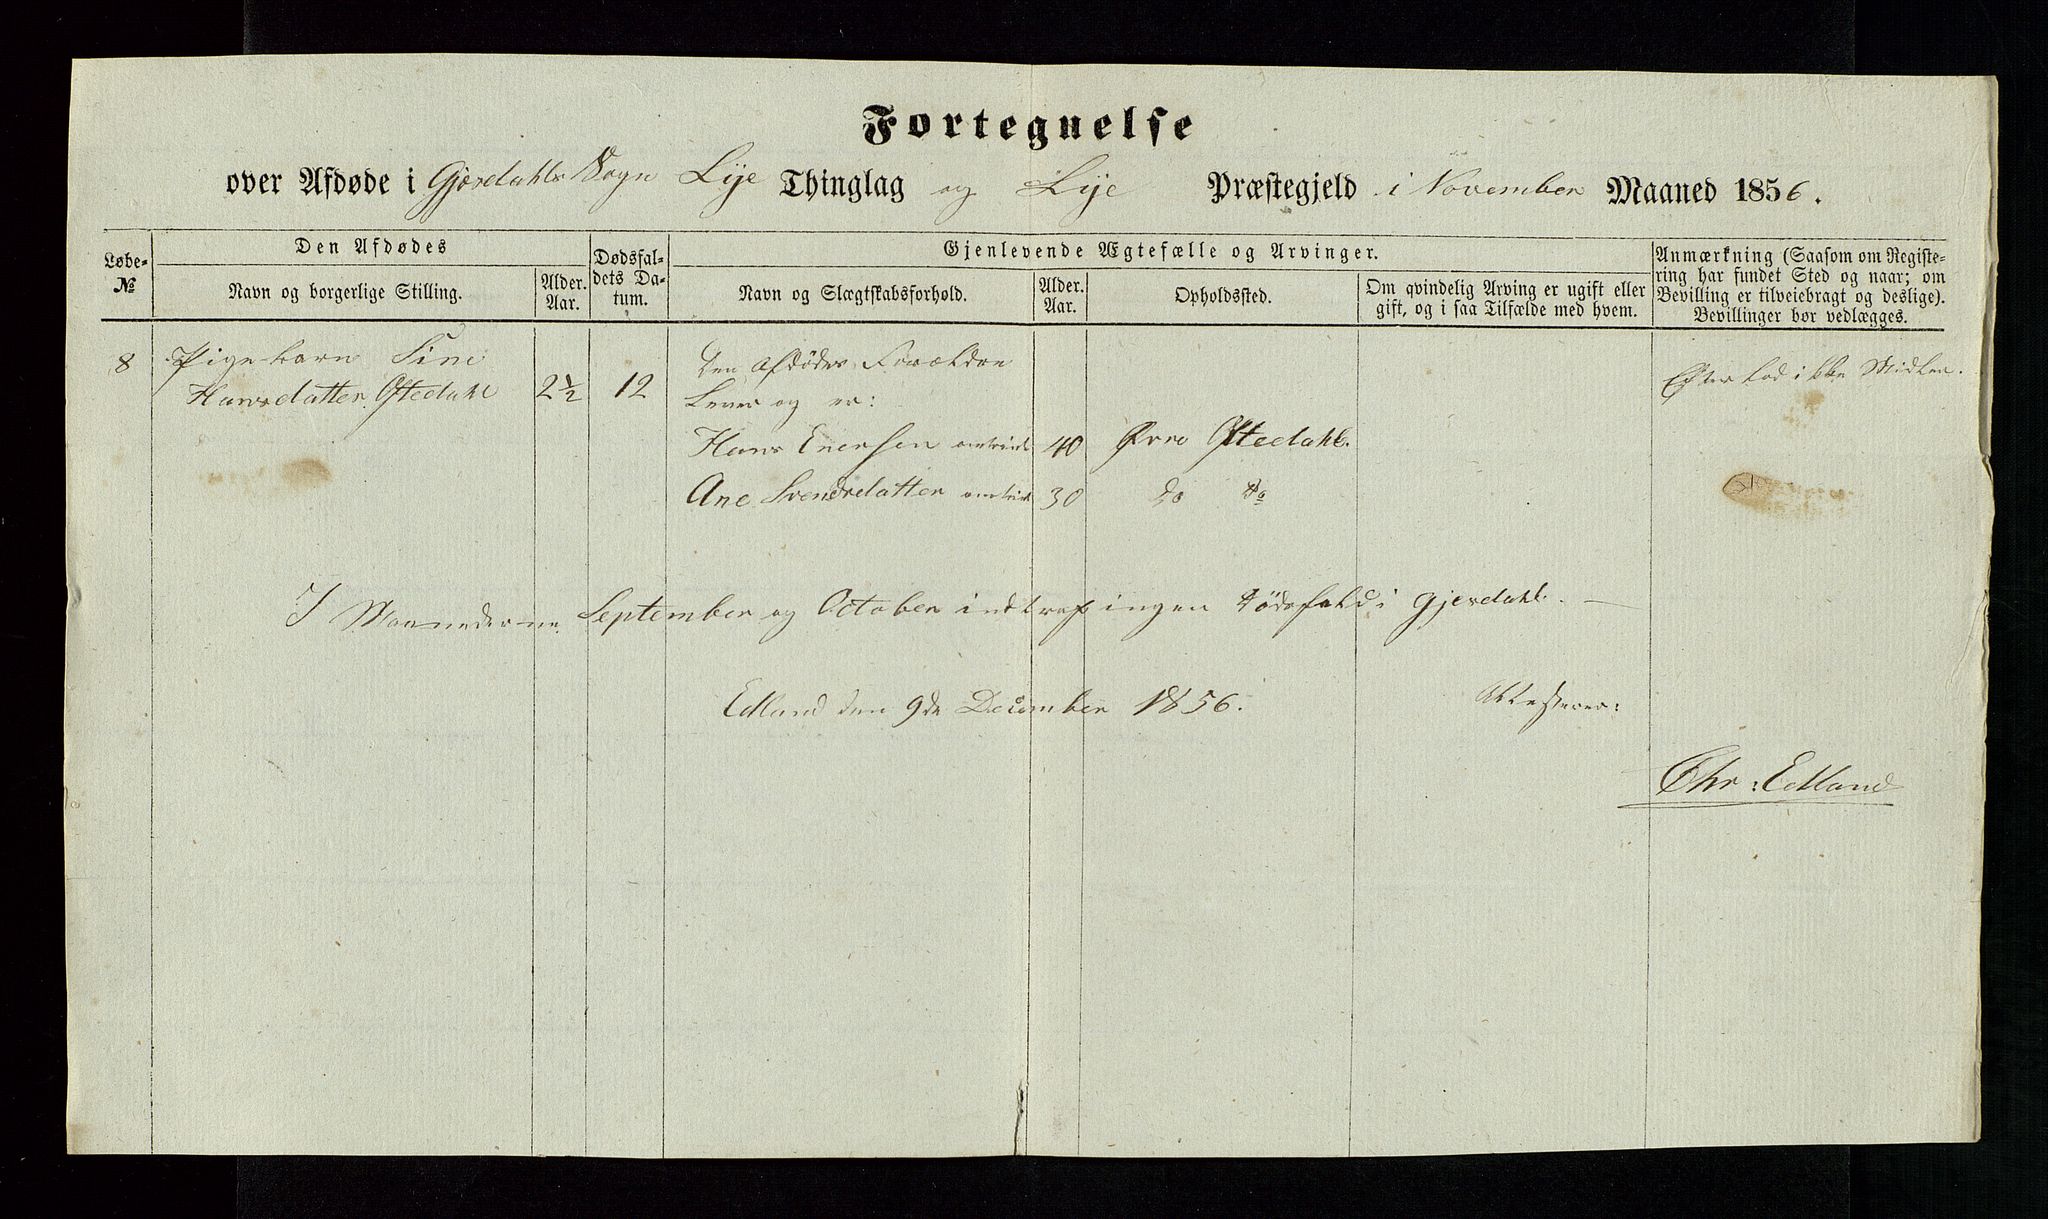 Fortegnelse
over Afdøde i Gjesdahls Sogn Lÿe Thinglag og Lÿe Præstegjeld i November Maaned 1856.
Løbe-
No
Den Afdødes
Navn og borgerlige Stilling.
Alder.
Aar.
Dødsfal-
dets Da-
tum.
Gjenlevende Ægtefælle og Arvinger.
Navn og Slægtskabsforhold.
Alder.
Aar.
Opholdssted.
Om qvindelig Arving er ugift eller
gift, og i saa Tilfælde med hvem.
Anmærkning (Saasom om Registe-
ring har fundet Sted og naar; om
Bevilling er tilveiebragt og deslige).
Bevillinger bør vedlægges.
8 Pigebarn Sine
Hansdatter Oftedahl 2½ 12
Den Afdødes Forældre
Lever og er:
Hans Enersen omtrent 40 Øvre Oftedahl.
Ane Svendsdatter omtrent 30 do do
Efterlod ikke Midler.
I Maanederne September og October indtraf ingen Dødsfald i Gjesdahl. —
Edland den 9de December 1856.
Attesterer:
Chr: Edland